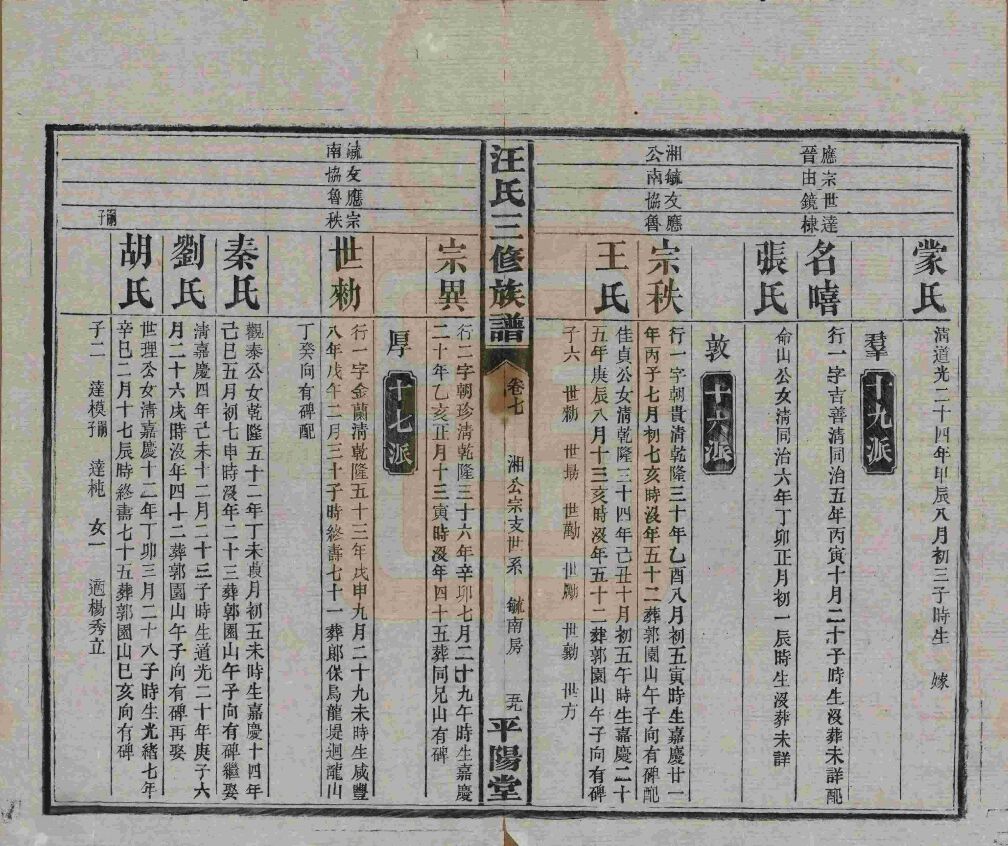 蒙氏
清道光二十四年甲辰八月初三子時生　嫁
羣　十九派
應宗世達
晉由鏡棣
名嘻
行一字吉善清同治五年丙寅十月二十子時生沒葬未詳配
張氏
命山公女清同治六年丁卯正月初一辰時生沒葬未詳
敦　十六派
湘毓友應
公南協魯
宗秩
行一字朝貴清乾隆三十年乙酉八月初五寅時生嘉慶廿一
年丙子七月初七亥時沒年五十二葬郭園山午子向有碑配
王氏
佳貞公女清乾隆三十四年己丑十月初五午時生嘉慶二十
五年庚辰八月十三亥時沒年五十二葬郭園山午子向有碑
子六　世勑　世勷　世勱　世勵　世勤　世方
汪氏三修族譜
卷七
湘公宗支世系　毓南房
五九
平陽堂
宗異
行二字朝珍清乾隆三十六年辛卯七月二十九午時生嘉慶
二十年乙亥正月十三寅時沒年四十五葬同兄山有碑
厚　十七派
毓友應宗
南協魯秩
世勑
行一字金蘭清乾隆五十三年戊申九月二十九未時生咸豐
八年戊午二月三十子時終壽七十一葬郎保烏龍堤迴龍山
丁癸向有碑配
秦氏
觀泰公女乾隆五十二年丁未葭月初五未時生嘉慶十四年
己巳五月初七申時沒年二十三葬郭園山午子向有碑繼娶
劉氏
清嘉慶四年己未十二月二十三子時生道光二十年庚子六
月二十六戌時沒年四十二葬郭園山午子向有碑再娶
嗣子
胡氏
世理公女清嘉慶十二年丁卯三月二十八子時生光緒七年
辛巳二月十七辰時終壽七十五葬郭園山巳亥向有碑
子二　達模嗣子　達杶　女一　適楊秀立